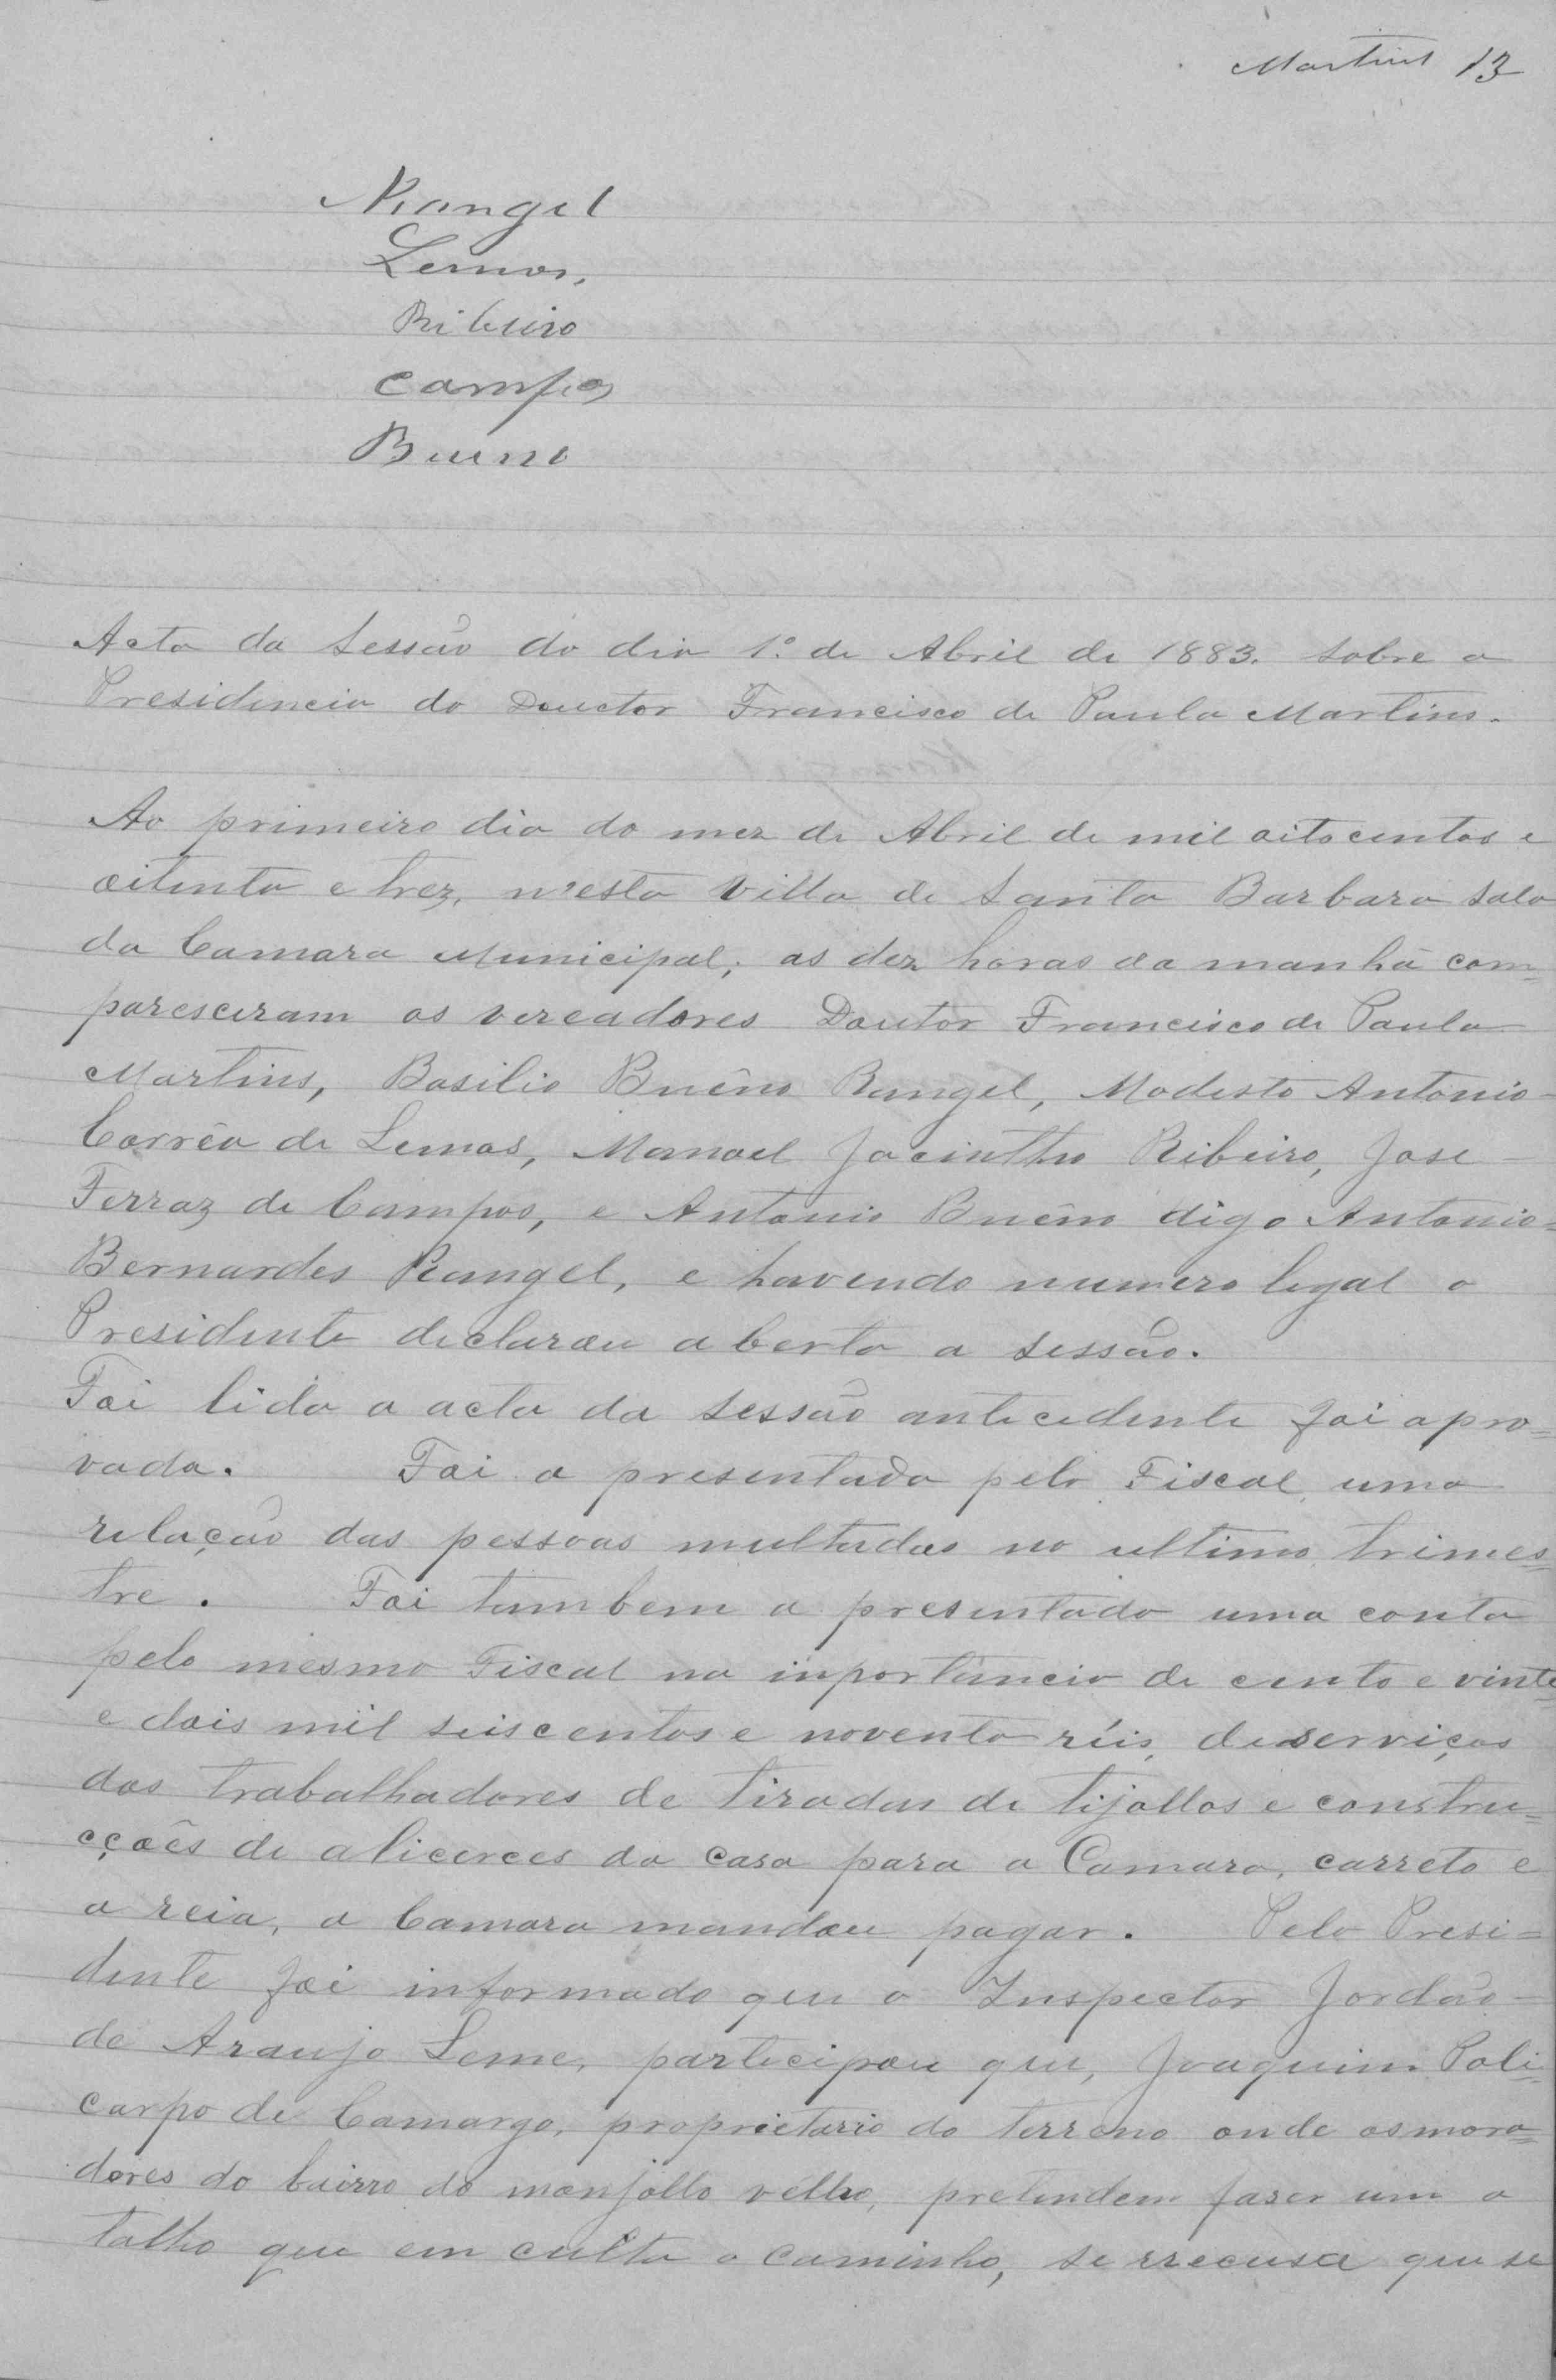 Martins 13
Rangel
Lemos,
Ribeiro
Campos
Bueno
Acta da Sessão do dia 1º. de Abril de 1883. sobre a
Presidencia do Douctor Francisco de Paula Martins.
Ao primeiro dia do mez de Abril de mil oitocentos e
oitenta e trez, n'esta Villa de Santa Barbara sala
da Camara Municipal, as dez horas da manhã com=
paresceram os vereadores Doutor Francisco de Paula
Martins, Basilio Buêno Rangel, Modesto Antonio
Corrêa de Lemos, Manoel Jacintho Ribeiro, Jose
Ferraz de Campos, e Antonio Buêno digo Antonio=
Bernardes Rangel, e havendo numero legal o
Presidente declarou aberta a sessão.
Foi lida a acta da sessão antecedente foi apro=
vada. Foi a presentada pelo Fiscal, uma
relação das pessoas multadas no ultimo trimes=
tre. Foi tambem a presentado uma conta
pelo mesmo Fiscal na inportância de cento e vinte
e dois mil seiscentos e noventa réis, de serviços
dos trabalhadores de tiradas de tijollos e constru=
cções de alicerces da casa para a Camara, carreto e
a reia, a Camara mandou pagar. Pelo Presi=
dente foi informado que o Inspector Jordão
de Araujo Leme, participou que, Joaquim Poli=
carpo de Camargo, proprietario do terreno onde os mora=
dores do bairro do monjollo velho, pretendem faser um a
talho que em culta o caminho, se rrecusa que se